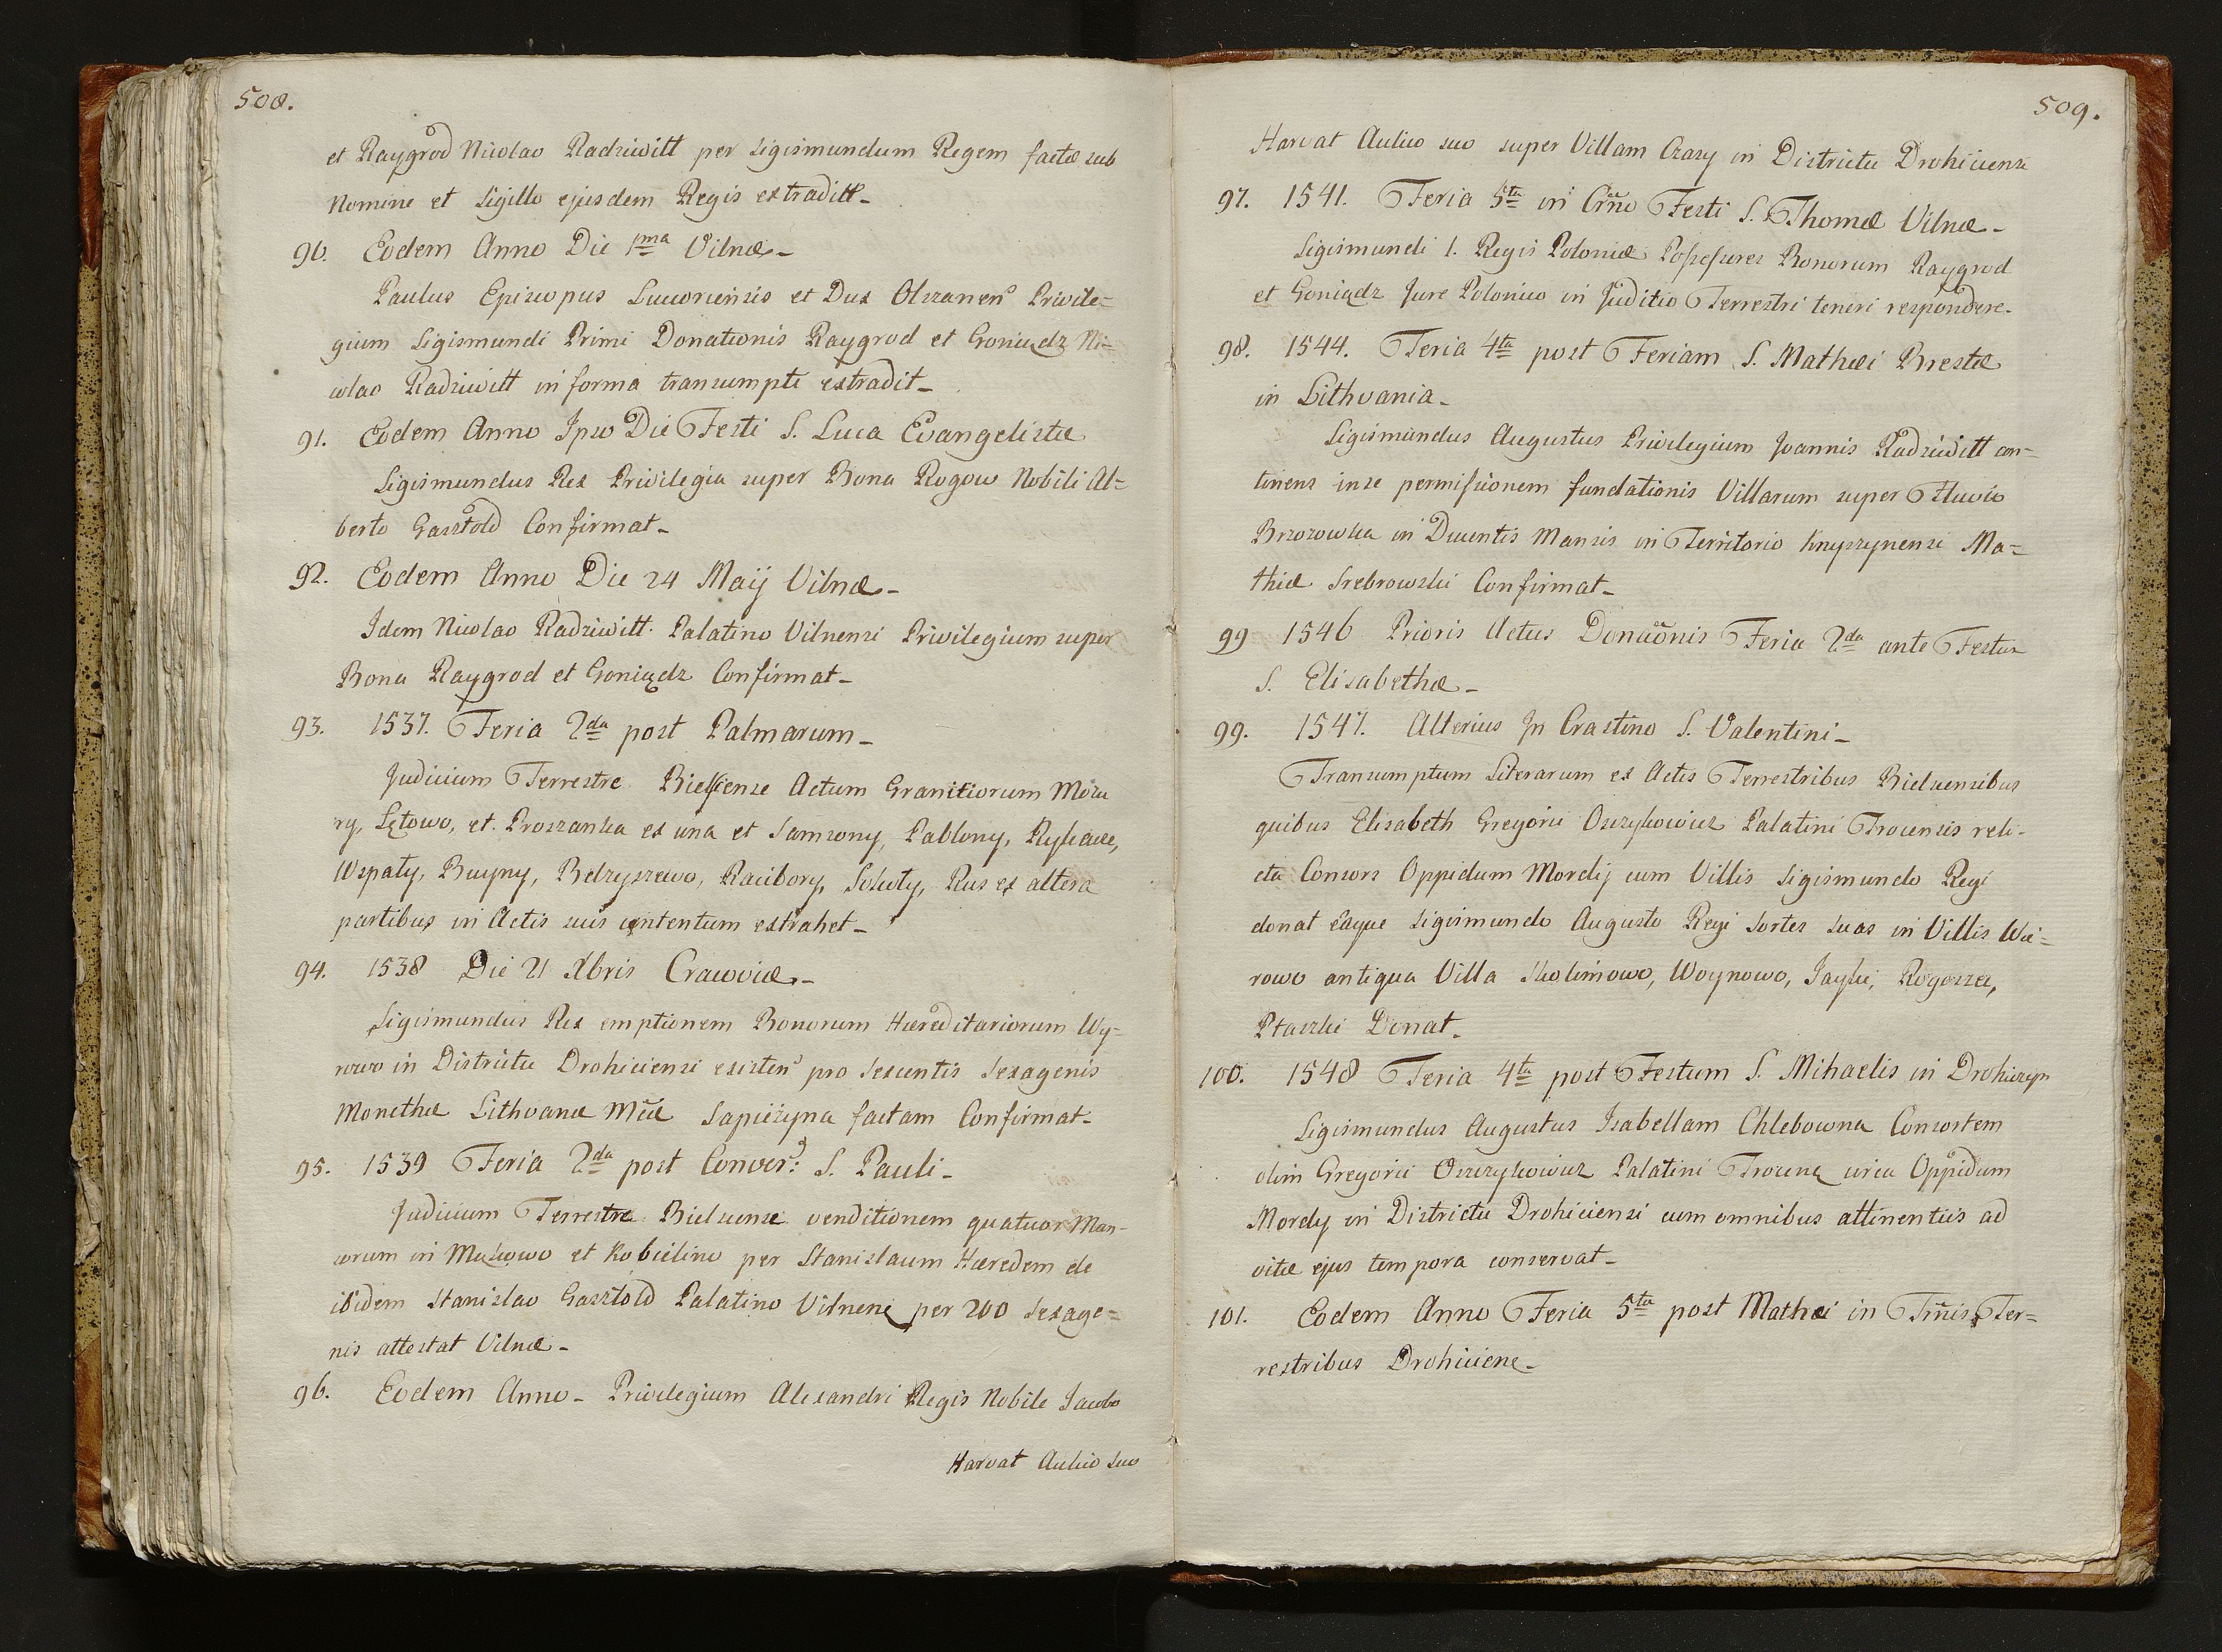 508.
et Raygrod Nicolao Radziwitt per Sigismundum Regem factæ sub
Nomine et Sigillo ejusdem Regis extraditt_
90. Eodem Anno Die 1ma Vilnæ_
Paulus Episcopus Luceoriensis et Dux Olszanen Privile=
gium Sigismundi Primi Donationis Raygrod et Goniądz Ni=
colao Radziwitt in forma transumpti extradit_
91. Eodem Anno Ipso Die Festi S. Luca Evangelistæ
Sigismundus Rex Privilegia super Bona Rogow Nobili Al=
berto Gasztold Confirmat_
92. Eodem Anno Die 24 Maij Vilnæ_
Idem Nicolao Radziwitt Palatino Vilnensi Privilegium super
Bona Raygrod et Goniądz Confirmat_
93. 1537. Feria 2da post Palmarum_
Judicium Terrestre Bielscense Actum Granitiorum Mozu
ry, Łętowo, et Proszanka ex una et Samsony, Pablony,
Wspaty, Buyny, Belzyszewo, Racibory, Sokoty, Rus ex altera
partibus in Actis suis contentum extrahet_
94. 1538 Die 21 Xbris Cracoviæ_
Sigismundus Rex emptionem Bonorum Hæreditariorum Wy=
rowo in Districtu Drohiciensi existen pro Sexcentis Sexagenis
Monethæ Lithvanæ Mcæ Sapieżyna factam Confirmat_
95. 1539 Feria 2da post Convers: S. Pauli_
Judicium Terrestre Bielscense venditionem quatuor Man-
sorum in Makowo et Kobielino per Stanislaum Hæredem de
ibidem Stanislao Gasztold Palatino Vilnene per 200 Sexage=
nis attestat Vilnæ_
96. Eodem Anno_ Privilegium Alexandri Regis Nobile Jacobo
Harvat Aulico suo
509.
Harvat Aulico suo super Villam Czasy in Districtu Drohiciensi
97. 1541. Feria 5ta in Crño Festi S. Thomæ Vilnæ_
Sigismundi 1. Regis Poloniæ Possessores Bonorum Raygrod
et Goniądz Jure Polonico in Juditio Terrestri teneri respondere_
98. 1544. Feria 4ta post Feriam S. Mathæi Brestæ
in Lithvania_
Sigismundus Augustus Privilegium Joannis Radziwitt con=
tinens in se permissionem fundationis Villarum super Fluvio
Brzozowka in Ducentis Mansis in Territorio Knyszynensi Ma=
thiæ Srebrowski Confirmat_
99 1546 Prioris Actus Donaõnis Feria 2da ante Festum
S. Elisabethæ_
99. 1547. Alterius In Crastino S. Valentini_
Transumptum Literarum ex Actis Terrestribus Bielscensibus
quibus Elisabeth Gregorii Oszczykowicz Palatini Trocensis reli-
cta Consors Oppidum Mordij cum Villis Sigismundo Regi
donat eaque Sigismundo Augusto Regi Sortes Suas in Villis Wie=
rowo antiqua Villa Skolimowo, Woynowo, Jayki, Rogoszee,
Ptaszki Donat_
100. 1548 Feria 4ta post Festum S. Mihaelis in Drohiczyn
Sigismundus Augustus Isabellam Chlebowna Consortem
olim Gregorii Oszczykowicz Palatini Trocene circa Oppidum
Mordy in Districtu Drohiciensi cum omnibus attinentiis ad
vitæ ejus tempora conservat_
101. Eodem Anno Feria 5ta post Mathæi in Tmis Ter=
restribus Drohiciene_